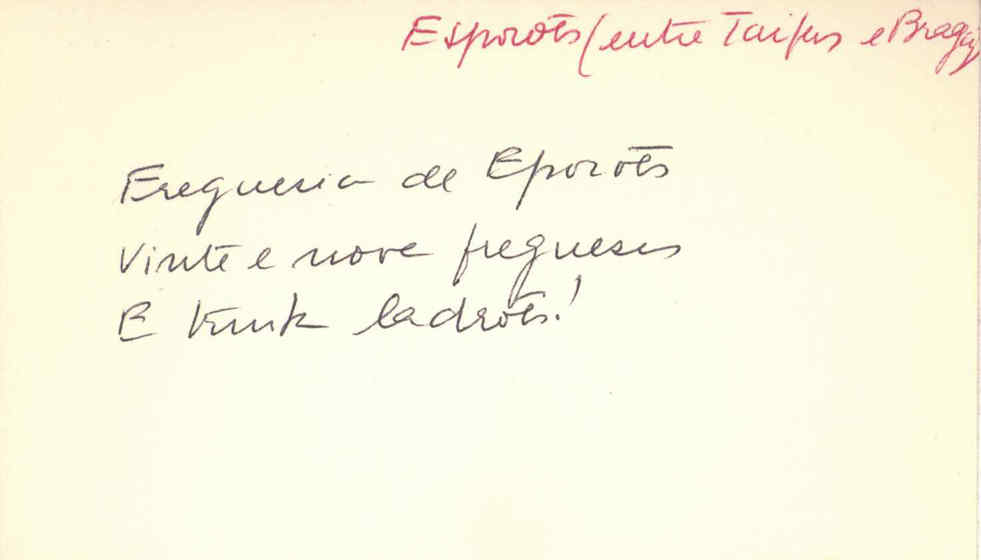 Esporões (entre Taipas e Braga)
Freguesia de Esporões
Vinte e nove fregueses
E trinta ladrões!